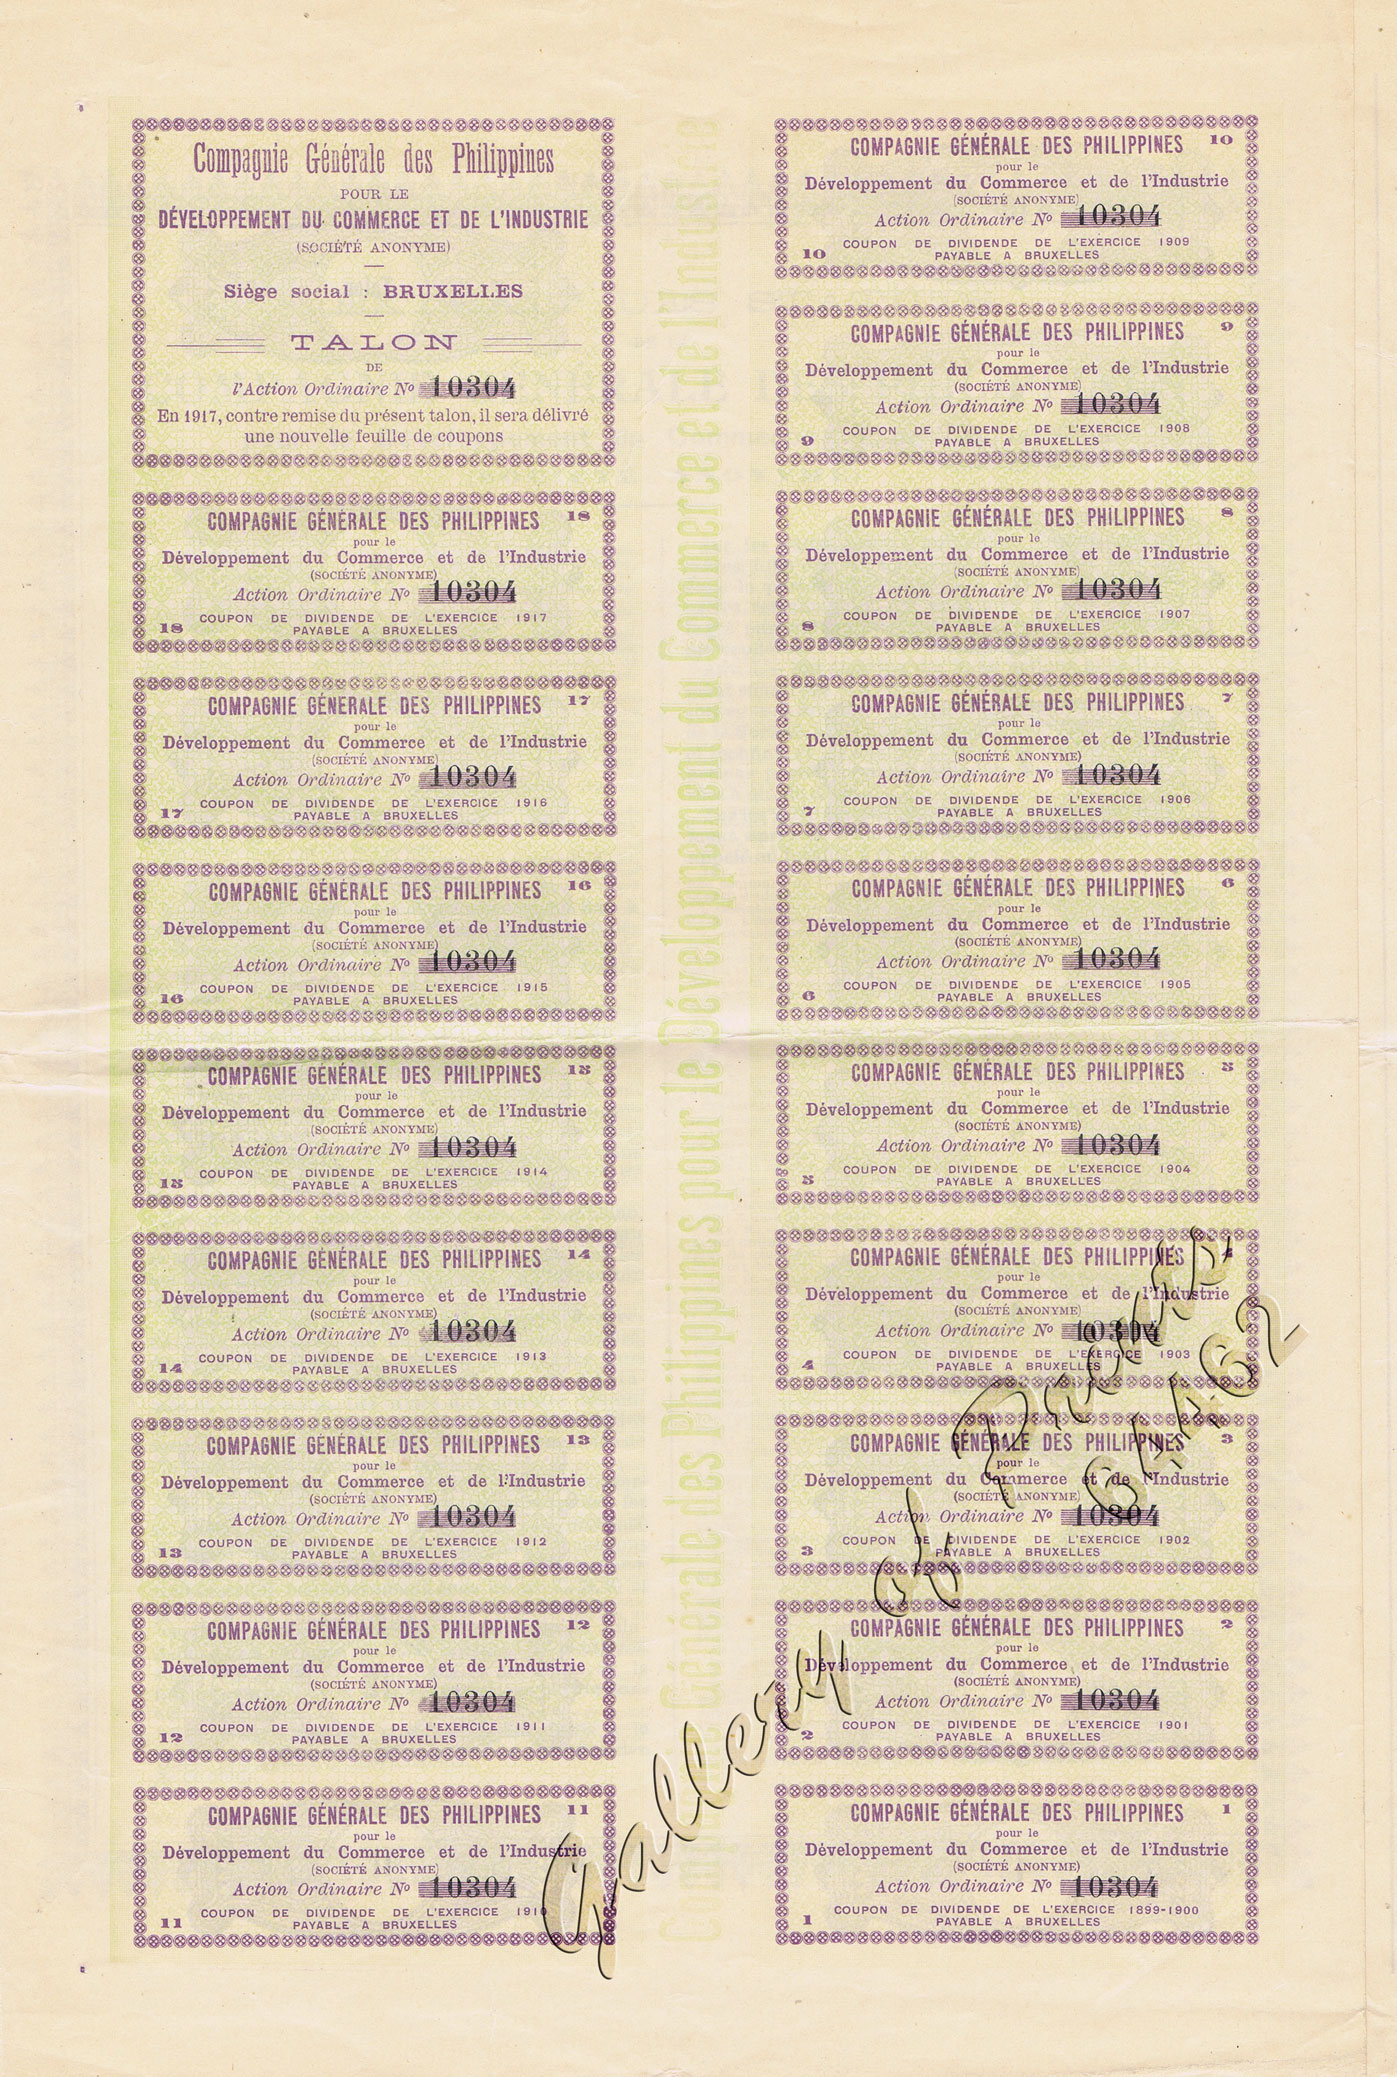 Compagnie Générale des Philippines
POUR LE
DÉVELOPPEMENT DU COMMERCE ET DE L'INDUSTRIE
(SOCIÉTÉ ANONYME)
Siège social : BRUXELLES
TALON
DE
l'Action Ordinaire No 10304
En 1917, contre remise du présent talon, il sera délivré
une nouvelle feuille de coupons
COMPAGNIE GÉNÉRALE DES PHILIPPINES 18
pour le
Développement du Commerce et de l'Industrie
(SOCIÉTÉ ANONYME)
Action Ordinaire No 10304
COUPON DE DIVIDENDE DE L'EXERCICE 1917
18 PAYABLE A BRUXELLES
COMPAGNIE GÉNÉRALE DES PHILIPPINES 17
pour le
Développement du Commerce et de l'Industrie
(SOCIÉTÉ ANONYME)
Action Ordinaire No 10304
COUPON DE DIVIDENDE DE L'EXERCICE 1916
17 PAYABLE A BRUXELLES
COMPAGNIE GÉNÉRALE DES PHILIPPINES 16
pour le
Développement du Commerce et de l'Industrie
(SOCIÉTÉ ANONYME)
Action Ordinaire No 10304
COUPON DE DIVIDENDE DE L'EXERCICE 1915
16 PAYABLE A BRUXELLES
COMPAGNIE GÉNÉRALE DES PHILIPPINES 15
pour le
Développement du Commerce et de l'Industrie
(SOCIÉTÉ ANONYME)
Action Ordinaire No 10304
COUPON DE DIVIDENDE DE L'EXERCICE 1914
15 PAYABLE A BRUXELLES
COMPAGNIE GÉNÉRALE DES PHILIPPINES 14
pour le
Développement du Commerce et de l'Industrie
(SOCIÉTÉ ANONYME)
Action Ordinaire No 10304
COUPON DE DIVIDENDE DE L'EXERCICE 1913
14 PAYABLE A BRUXELLES
COMPAGNIE GÉNÉRALE DES PHILIPPINES 13
pour le
Développement du Commerce et de l'Industrie
(SOCIÉTÉ ANONYME)
Action Ordinaire No 10304
COUPON DE DIVIDENDE DE L'EXERCICE 1912
13 PAYABLE A BRUXELLES
COMPAGNIE GÉNÉRALE DES PHILIPPINES 12
pour le
Développement du Commerce et de l'Industrie
(SOCIÉTÉ ANONYME)
Action Ordinaire No 10304
COUPON DE DIVIDENDE DE L'EXERCICE 1911
12 PAYABLE A BRUXELLES
COMPAGNIE GÉNÉRALE DES PHILIPPINES 11
pour le
Développement du Commerce et de l'Industrie
(SOCIÉTÉ ANONYME)
Action Ordinaire No 10304
COUPON DE DIVIDENDE DE L'EXERCICE 1910
11 PAYABLE A BRUXELLES
Compagnie Générale des Philippines pour le Développement du Commerce et de l'Industrie
COMPAGNIE GÉNÉRALE DES PHILIPPINES 10
pour le
Développement du Commerce et de l'Industrie
(SOCIÉTÉ ANONYME)
Action Ordinaire No 10304
COUPON DE DIVIDENDE DE L'EXERCICE 1909
10 PAYABLE A BRUXELLES
COMPAGNIE GÉNÉRALE DES PHILIPPINES 9
pour le
Développement du Commerce et de l'Industrie
(SOCIÉTÉ ANONYME)
Action Ordinaire No 10304
COUPON DE DIVIDENDE DE L'EXERCICE 1908
9 PAYABLE A BRUXELLES
COMPAGNIE GÉNÉRALE DES PHILIPPINES 8
pour le
Développement du Commerce et de l'Industrie
(SOCIÉTÉ ANONYME)
Action Ordinaire No 10304
COUPON DE DIVIDENDE DE L'EXERCICE 1907
8 PAYABLE A BRUXELLES
COMPAGNIE GÉNÉRALE DES PHILIPPINES 7
pour le
Développement du Commerce et de l'Industrie
(SOCIÉTÉ ANONYME)
Action Ordinaire No 10304
COUPON DE DIVIDENDE DE L'EXERCICE 1906
7 PAYABLE A BRUXELLES
COMPAGNIE GÉNÉRALE DES PHILIPPINES 6
pour le
Développement du Commerce et de l'Industrie
(SOCIÉTÉ ANONYME)
Action Ordinaire No 10304
COUPON DE DIVIDENDE DE L'EXERCICE 1905
6 PAYABLE A BRUXELLES
COMPAGNIE GÉNÉRALE DES PHILIPPINES 5
pour le
Développement du Commerce et de l'Industrie
(SOCIÉTÉ ANONYME)
Action Ordinaire No 10304
COUPON DE DIVIDENDE DE L'EXERCICE 1904
5 PAYABLE A BRUXELLES
COMPAGNIE GÉNÉRALE DES PHILIPPINES 4
pour le
Développement du Commerce et de l'Industrie
(SOCIÉTÉ ANONYME)
Action Ordinaire No 10304
COUPON DE DIVIDENDE DE L'EXERCICE 1903
4 PAYABLE A BRUXELLES
COMPAGNIE GÉNÉRALE DES PHILIPPINES 3
pour le
Développement du Commerce et de l'Industrie
(SOCIÉTÉ ANONYME)
Action Ordinaire No 10304
COUPON DE DIVIDENDE DE L'EXERCICE 1902
3 PAYABLE A BRUXELLES
COMPAGNIE GÉNÉRALE DES PHILIPPINES 2
pour le
Développement du Commerce et de l'Industrie
(SOCIÉTÉ ANONYME)
Action Ordinaire No 10304
COUPON DE DIVIDENDE DE L'EXERCICE 1901
2 PAYABLE A BRUXELLES
COMPAGNIE GÉNÉRALE DES PHILIPPINES 1
pour le
Développement du Commerce et de l'Industrie
(SOCIÉTÉ ANONYME)
Action Ordinaire No 10304
COUPON DE DIVIDENDE DE L'EXERCICE 1899-1900
1 PAYABLE A BRUXELLES
Gallery of